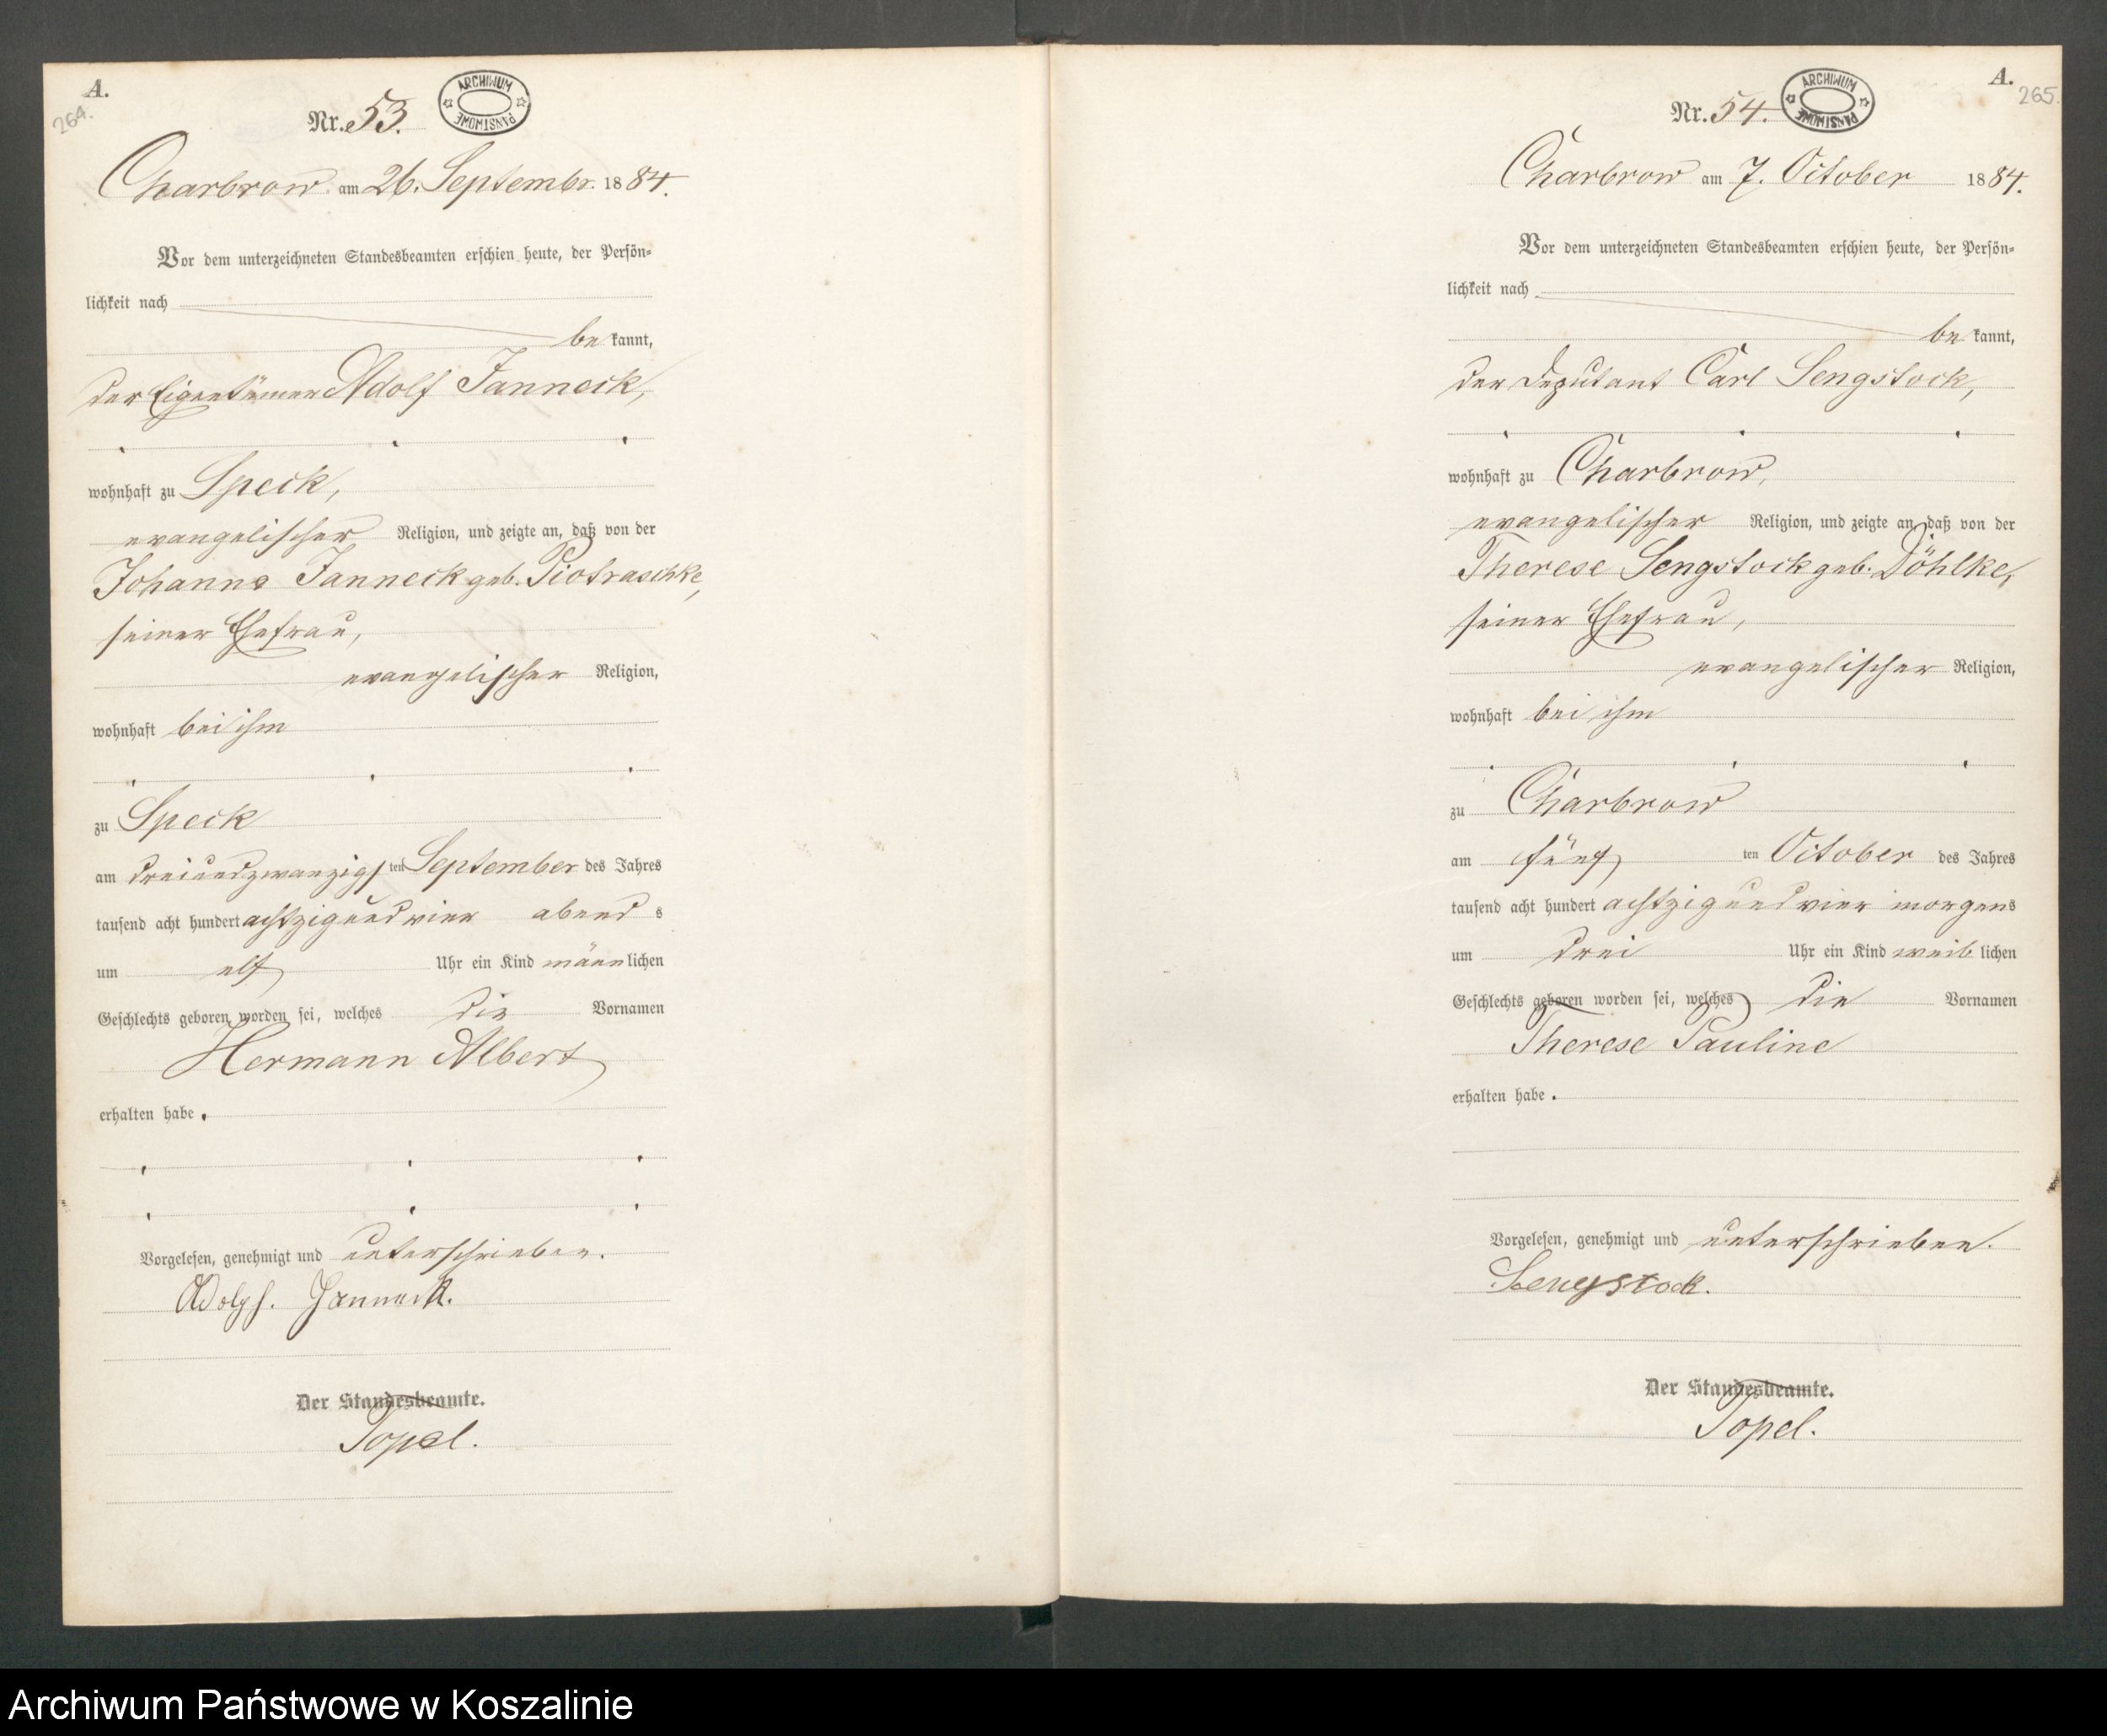 A.
264.
Nr. 53.
ARCHIWUM PAŃSTWOWE
Charbrow am 26. Septembr. 1884.
Vor dem unterzeichneten Standesbeamten erschien heute, der Persön-
lichkeit nach
be kannt,
der Eigentümer Adolf Janneck,
wohnhaft zu Speck,
evangelischer Religion, und zeigte an, daß von der
Johanne Janneck geb. Piotraschke,
seiner Ehefrau,
evangelischer Religion,
wohnhaft bei ihm
zu Speck
am dreiundzwanzigsten September des Jahres
tausend acht hundert achtzig und vier abend s
um elf Uhr ein Kind männlichen
Geschlechts geboren worden sei, welches die Vornamen
Hermann Albert
erhalten habe.
Vorgelesen, genehmigt und unterschrieben.
Adolph. Janneck.
Der Standesbeamte.
Topel.
A.
265.
Nr. 54.
ARCHIWUM PAŃSTWOWE
Charbrow am 7. October 1884.
Vor dem unterzeichneten Standesbeamten erschien heute, der Persön-
lichkeit nach
be kannt,
der Deputant Carl Sengstock,
wohnhaft zu Charbrow,
evangelischer Religion, und zeigte an, daß von der
Therese Sengstock geb. Döhlke,
seiner Ehefrau,
evangelischer Religion,
wohnhaft bei ihm
zu Charbrow
am fünf ten October des Jahres
tausend acht hundert achtzig und vier morgens
um drei Uhr ein Kind weib lichen
Geschlechts geboren worden sei, welches die Vornamen
Therese Pauline
erhalten habe.
Vorgelesen, genehmigt und unterschrieben.
Sengstock.
Der Standesbeamte.
Topel.
Archiwum Państwowe w Koszalinie